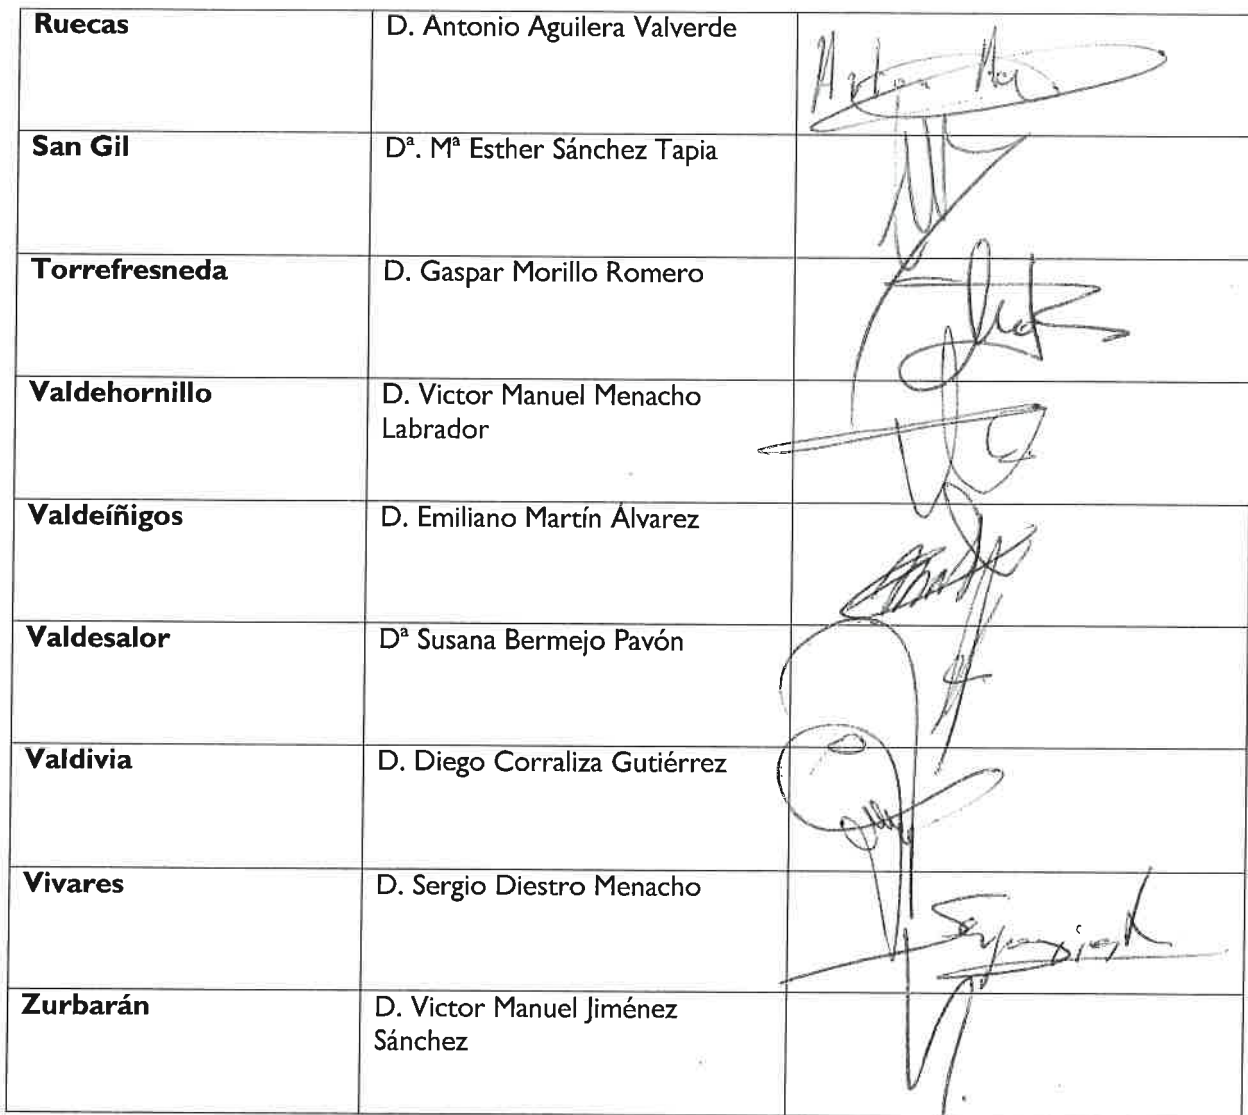 Ruecas
D. Antonio Aguilera Valverde
San Gil
Dª. Mª Esther Sánchez Tapia
Torrefresneda
D. Gaspar Morillo Romero
Valdehornillo
D. Victor Manuel Menacho
Labrador
Valdeíñigos
D. Emiliano Martín Álvarez
Valdesalor
Dª Susana Bermejo Pavón
Valdivia
D. Diego Corraliza Gutiérrez
Vivares
D. Sergio Diestro Menacho
Zurbarán
D. Victor Manuel Jiménez
Sánchez